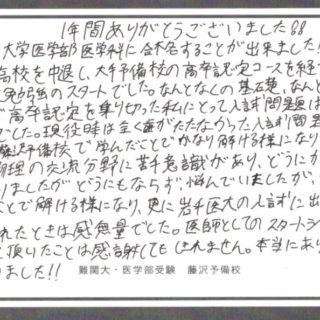 1年間ありがとうございました!!
大学医学部医学科に合格することが出来ました!
高校を中退し、大手予備校の高卒認定コースを経て
弱のスタートでした。なんとなくの基礎、なんと
で高卒認定を乗り切った私にとって入試問題は
でした。現役時は全く歯がたたなかった入試問題
藤沢予備校で学んだことでかなり解ける様になり
物理の交流分野に苦手意識があり、どうにか
りましたがどうにもならず悩んでいましたが、
ことで解ける様になり、更に岩手医大の入試に出
れたときは感無量でした。医師としてのスタートライ
と頂いたことは感謝してもしきれません。本当にあり
いました!!
難関大・医学部受験 藤沢予備校